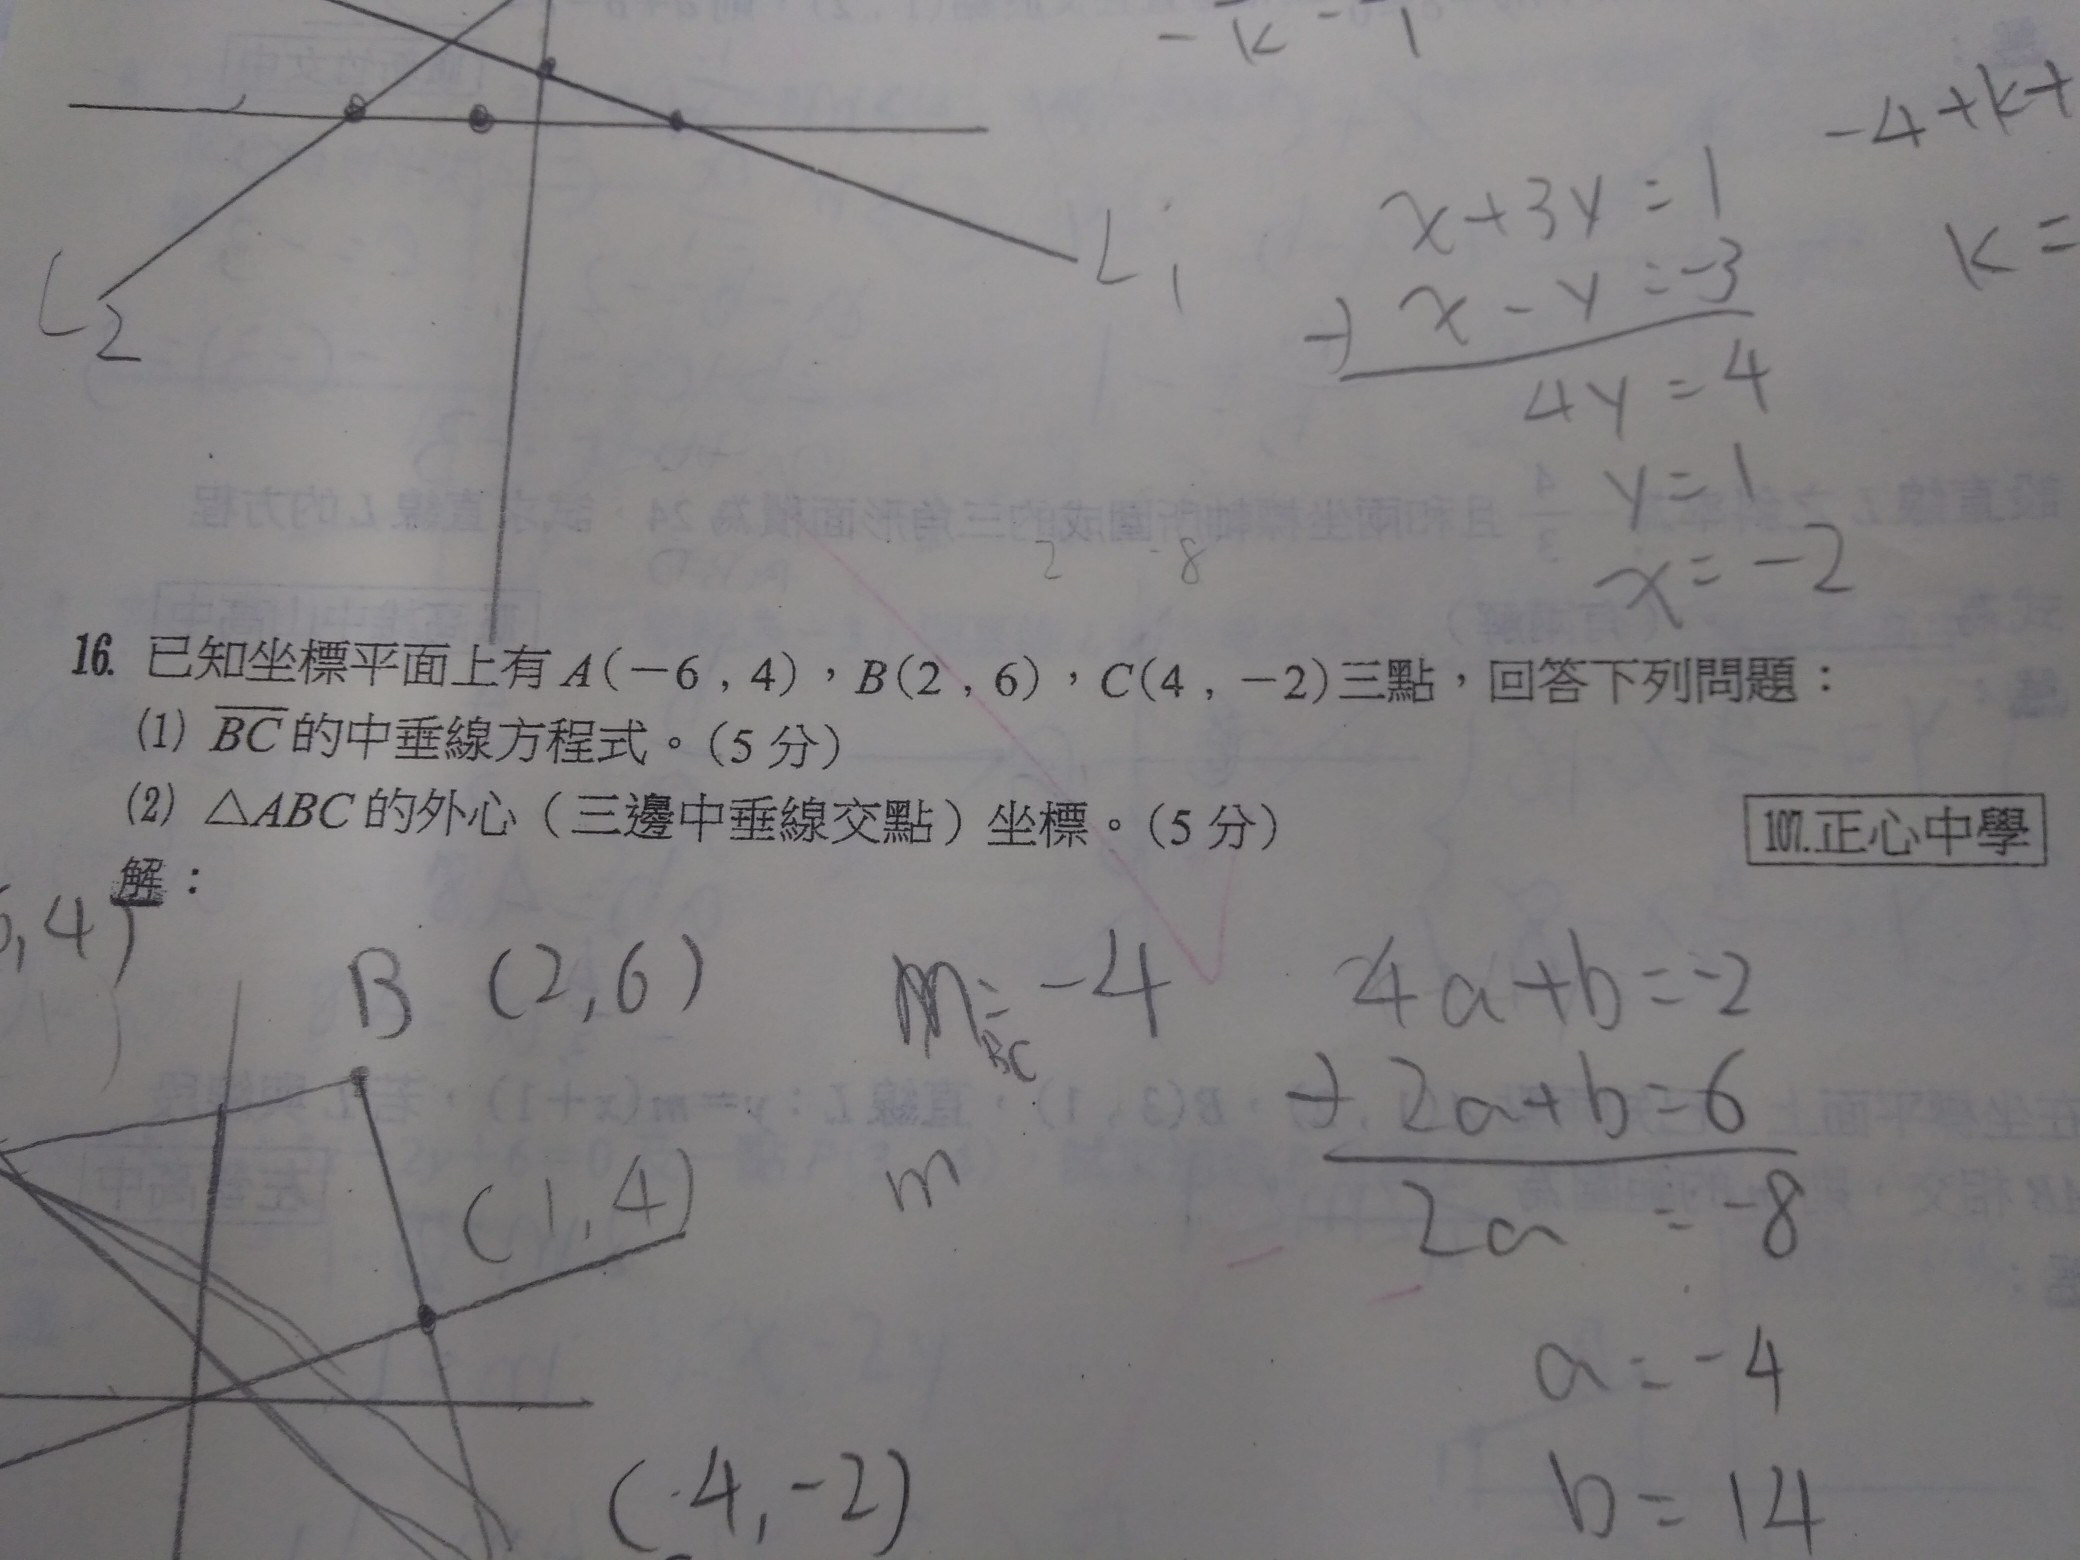 -4+k+
x+3y=1
k=
-) x-y=-3
L1
L2
4y=4
y=1
2 -8
x=-2
16. 已知坐標平面上有 A(-6, 4),B(2, 6),C(4, -2)三點,回答下列問題:
(1) BC 的中垂線方程式。(5 分)
(2) △ABC 的外心(三邊中垂線交點)坐標。(5 分)
107.正心中學
解:
,4)
B (2,6)
m BC = -4
4a+b=-2
-) 2a+b=6
(1,4)
m
2a = -8
a=-4
(4,-2)
b=14